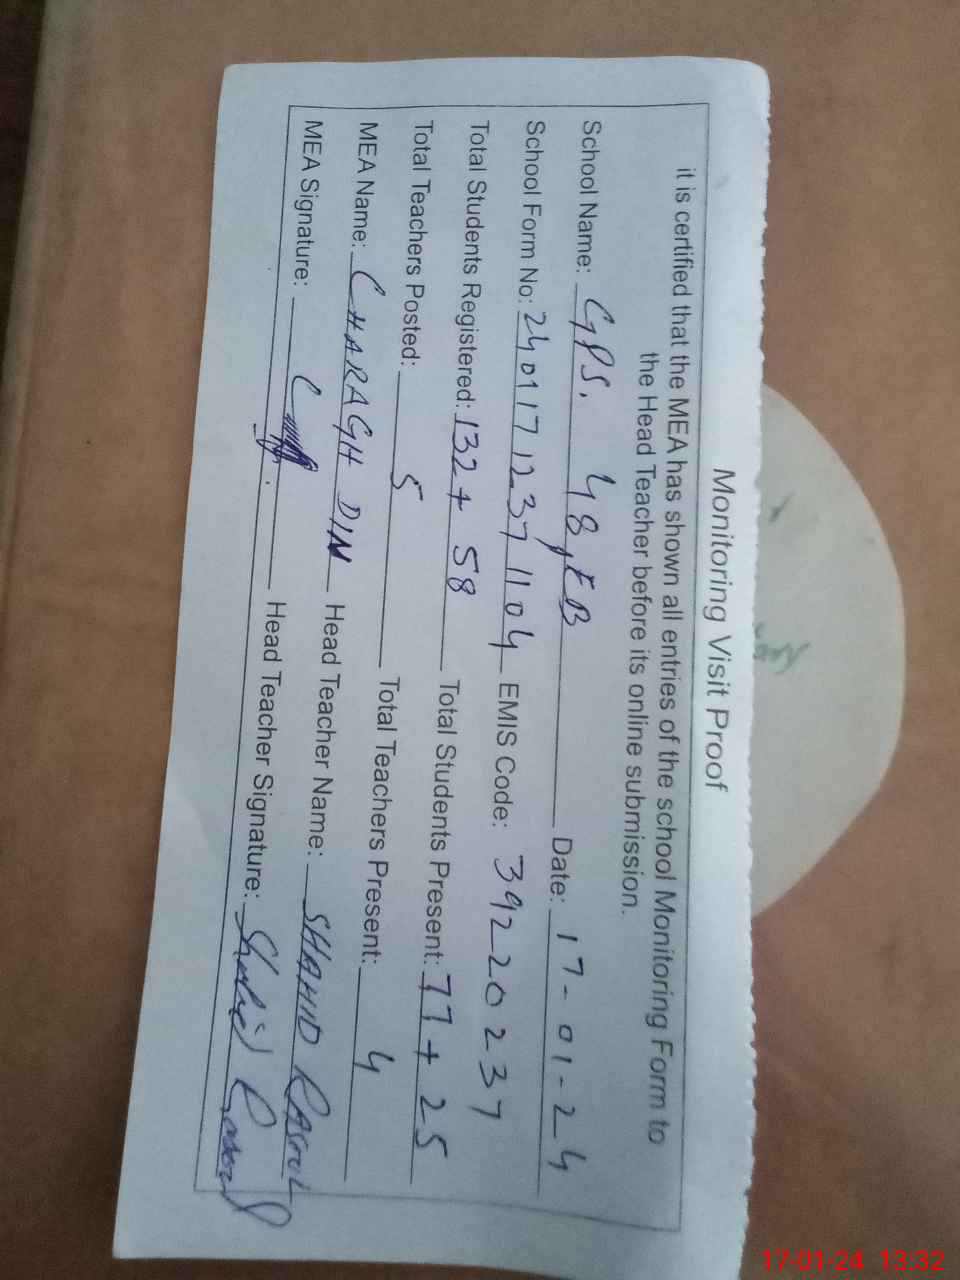 Monitoring Visit Proof
it is certified that the MEA has shown all entries of the school Monitoring Form to
the Head Teacher before its online submission.
School Name: GPS. 48,EB Date: 17-01-24
School Form No: 24011712371104 EMIS Code: 39220237
Total Students Registered: 132+58 Total Students Present: 77+25
Total Teachers Posted: 5 Total Teachers Present: 4
MEA Name: CHARAGH DIN Head Teacher Name: SHAHID RASUL
MEA Signature: Head Teacher Signature: Shahid Rasool
17-01-24 13:32